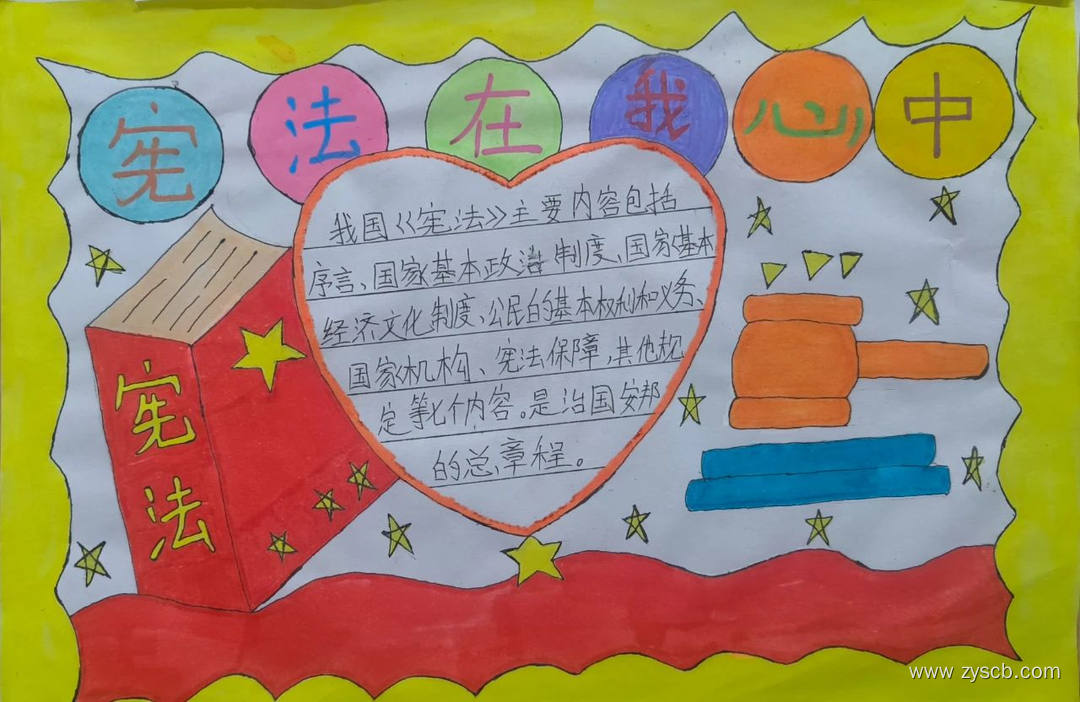 宪法在我心中
我国《宪法》主要内容包括
序言、国家基本政治制度、国家基本
经济文化制度、公民的基本权利和义务、
国家机构、宪法保障,其他规
定等七个内容。是治国安邦
的总章程。
宪法
www.zyscb.com